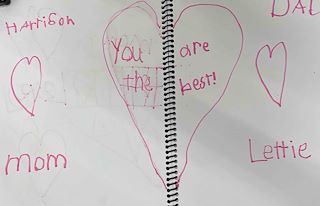 Harrison
DAD
You are
the best!
mom
Lettie